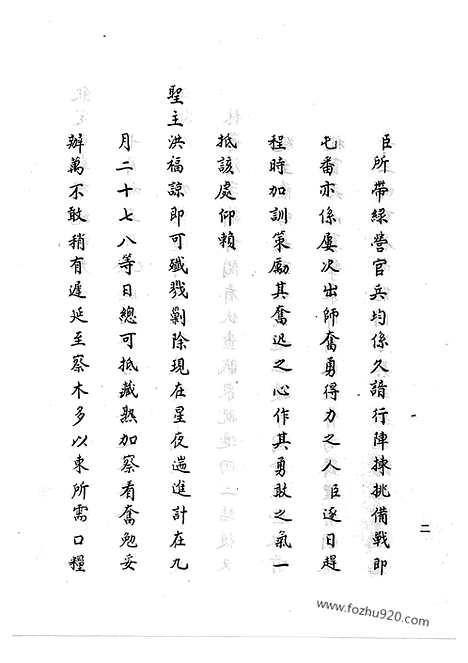 臣所帶綠營官兵均係久諳行陣揀挑備戰即
屯番亦係屢次出師奮勇得力之人臣逐日趕
程時加訓策勵其奮迅之心作其勇敢之氣一
抵該處仰賴
聖主洪福諒即可殲戮剿除現在星夜遄進計在九
月二十七八等日總可抵藏熟加察看奮勉妥
辦萬不敢稍有遲延至察木多以東所需口糧
二
www.fozhu920.com